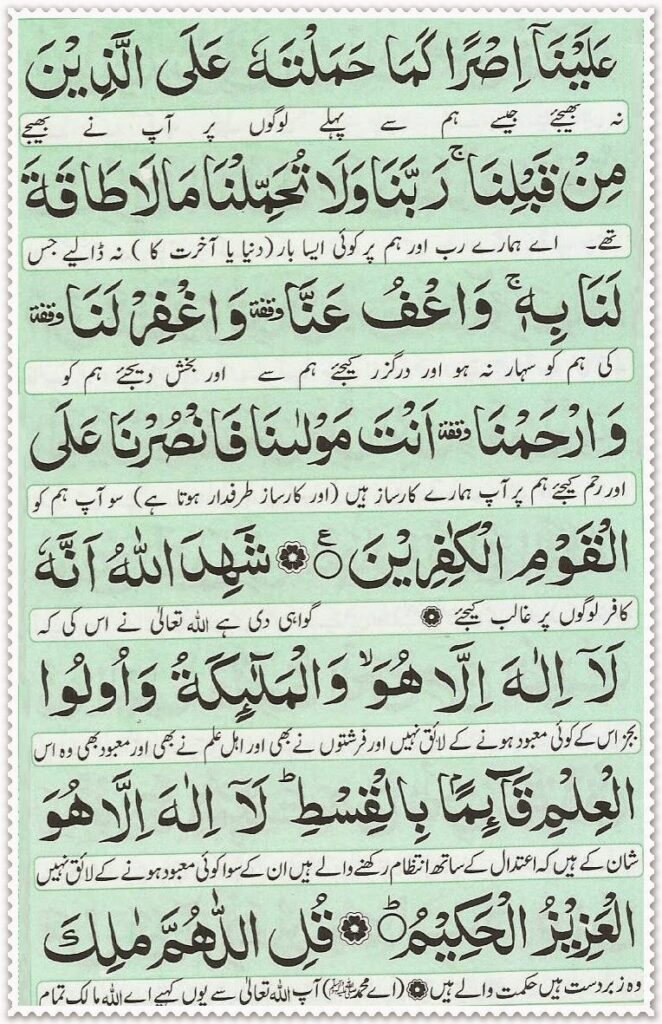 عَلَيْنَآ اِصْرًا كَمَا حَمَلْتَهٗ عَلَى الَّذِيْنَ
نہ بھیجئے جیسے ہم سے پہلے لوگوں پر آپ نے بھیجے
مِنْ قَبْلِنَا ۚ رَبَّنَا وَلَا تُحَمِّلْنَا مَا لَا طَاقَةَ
تھے۔ اے ہمارے رب اور ہم پر کوئی ایسا بار (دنیا یا آخرت کا) نہ ڈالیے جس
لَنَا بِهٖ ۚ وَاعْفُ عَنَّا وقفة وَاغْفِرْ لَنَا وقفة
کی ہم کو سہار نہ ہو اور درگزر کیجئے ہم سے اور بخش دیجئے ہم کو
وَارْحَمْنَا وقفة اَنْتَ مَوْلٰىنَا فَانْصُرْنَا عَلَى
اور رحم کیجئے ہم پر آپ ہمارے کارساز ہیں (اور کارساز طرفدار ہوتا ہے) سو آپ ہم کو
الْقَوْمِ الْكٰفِرِيْنَ ۝ع شَهِدَ اللّٰهُ اَنَّهٗ
کافر لوگوں پر غالب کیجئے گواہی دی ہے اللہ تعالیٰ نے اس کی کہ
لَآ اِلٰهَ اِلَّا هُوَ ۙ وَالْمَلٰٓئِكَةُ وَاُولُوا
بجز اس کے کوئی معبود ہونے کے لائق نہیں اور فرشتوں نے بھی اور اہل علم نے بھی اور معبود بھی وہ اس
الْعِلْمِ قَآئِمًۢا بِالْقِسْطِ ؕ لَآ اِلٰهَ اِلَّا هُوَ
شان کے ہیں کہ اعتدال کے ساتھ انتظام رکھنے والے ہیں ان کے سوا کوئی معبود ہونے کے لائق نہیں
الْعَزِيْزُ الْحَكِيْمُ ۝ؕ قُلِ اللّٰهُمَّ مٰلِكَ
وہ زبردست ہیں حکمت والے ہیں (اے محمد ﷺ) آپ اللہ تعالیٰ سے یوں کہیے اے اللہ مالک تمام